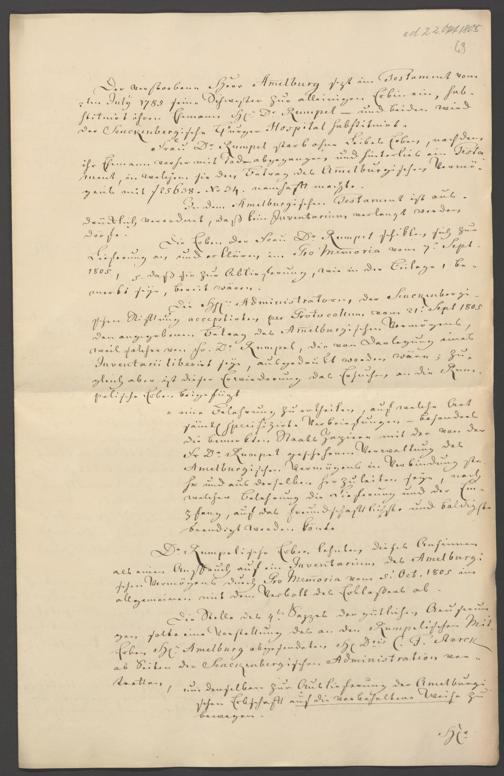 ad 22 Oct 1805
63
Der verstorbene Herr Amelburg setzt im Testament vom
ten July 1785 seine Schwester zur alleinigen Erbin ein, sub-
stituirt ihren Ehemann H. Dr Rumpel – und beiden wird
der Senckenbergische Bürger Hospital substituirt.
Frau Dr Rumpel starb ohne Leibes Erben, nachdem
ihr Ehemann vorher mit Tode abgegangen, und hinterließ ein Testa
ment, in welchem sie den Betrag des Amelburgischen Vermö-
gens mit namhaft machte.
In dem Amelburgischen Testament ist aus-
drücklich verordnet, daß kein Inventarium verlangt werden
dörfe.
Die Erben der Frau Dr Rumpel schikten sich zur
Lieferung an, und erklärten im Pro Memoria vom 7. Sept.
1805, daß sie zur Ablieferung, wie in der Beilage, be-
merkt seye, bereit wären.
Die H. Administratoren, der Senckenbergi-
schen Stiftung acceptirten, per Protocollum vom 21. Sept 1805
den angegebenen Betrag des Amelburgischen Vermögens,
weil solcher von Fr. Dr. Rumpel, die von Darlegung eines
Inventarii liberirt seye, ausgedrükt worden wäre; zu-
gleich aber ist dieser Erwiederung das Ersuchen an die Rum-
pelische Erben beigefügt
eine Belehrung zu ertheilen, auf welche Art
specifizirte Verbriefungen – besonders
die bemerkten Staats Papiere mit der von der
Fr Dr Rumpel geschehenen Verwaltung des
Amelburgischen Vermögens in Verbindung ste
he und aus derselben herzuleiten seye, nach
welcher Belehrung die Lieferung und der Em-
pfang, auf das freundschaftlichste und baldigste
beendigt werden könte.
Dr Rumpelische Erben lehnten dieses Ansinnen
als einen Anspruch auf ein Inventarium des Amelburgi-
schen Vermögens durch Pro Memoria vom 5. Oct. 1805 im
allgemeinen mit dem Verbott des Erblassers ab.
Die Stelle des 4. Sazzes der gütlichen Aeusserun
gen, solte eine Vorstellung des an den Rumpelischen Mit
Erben H. Amelburg abgesendeten H. C. F.
ab Seiten der Senckenbergischen Administration ver-
tretten, um denselben zur Auslieferung der Amelburgi
schen Erbschaft auf die vorbehaltene Weise zu
bewegen.